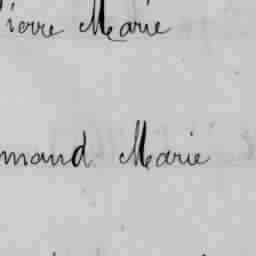 Pierre Marie
mand Marie